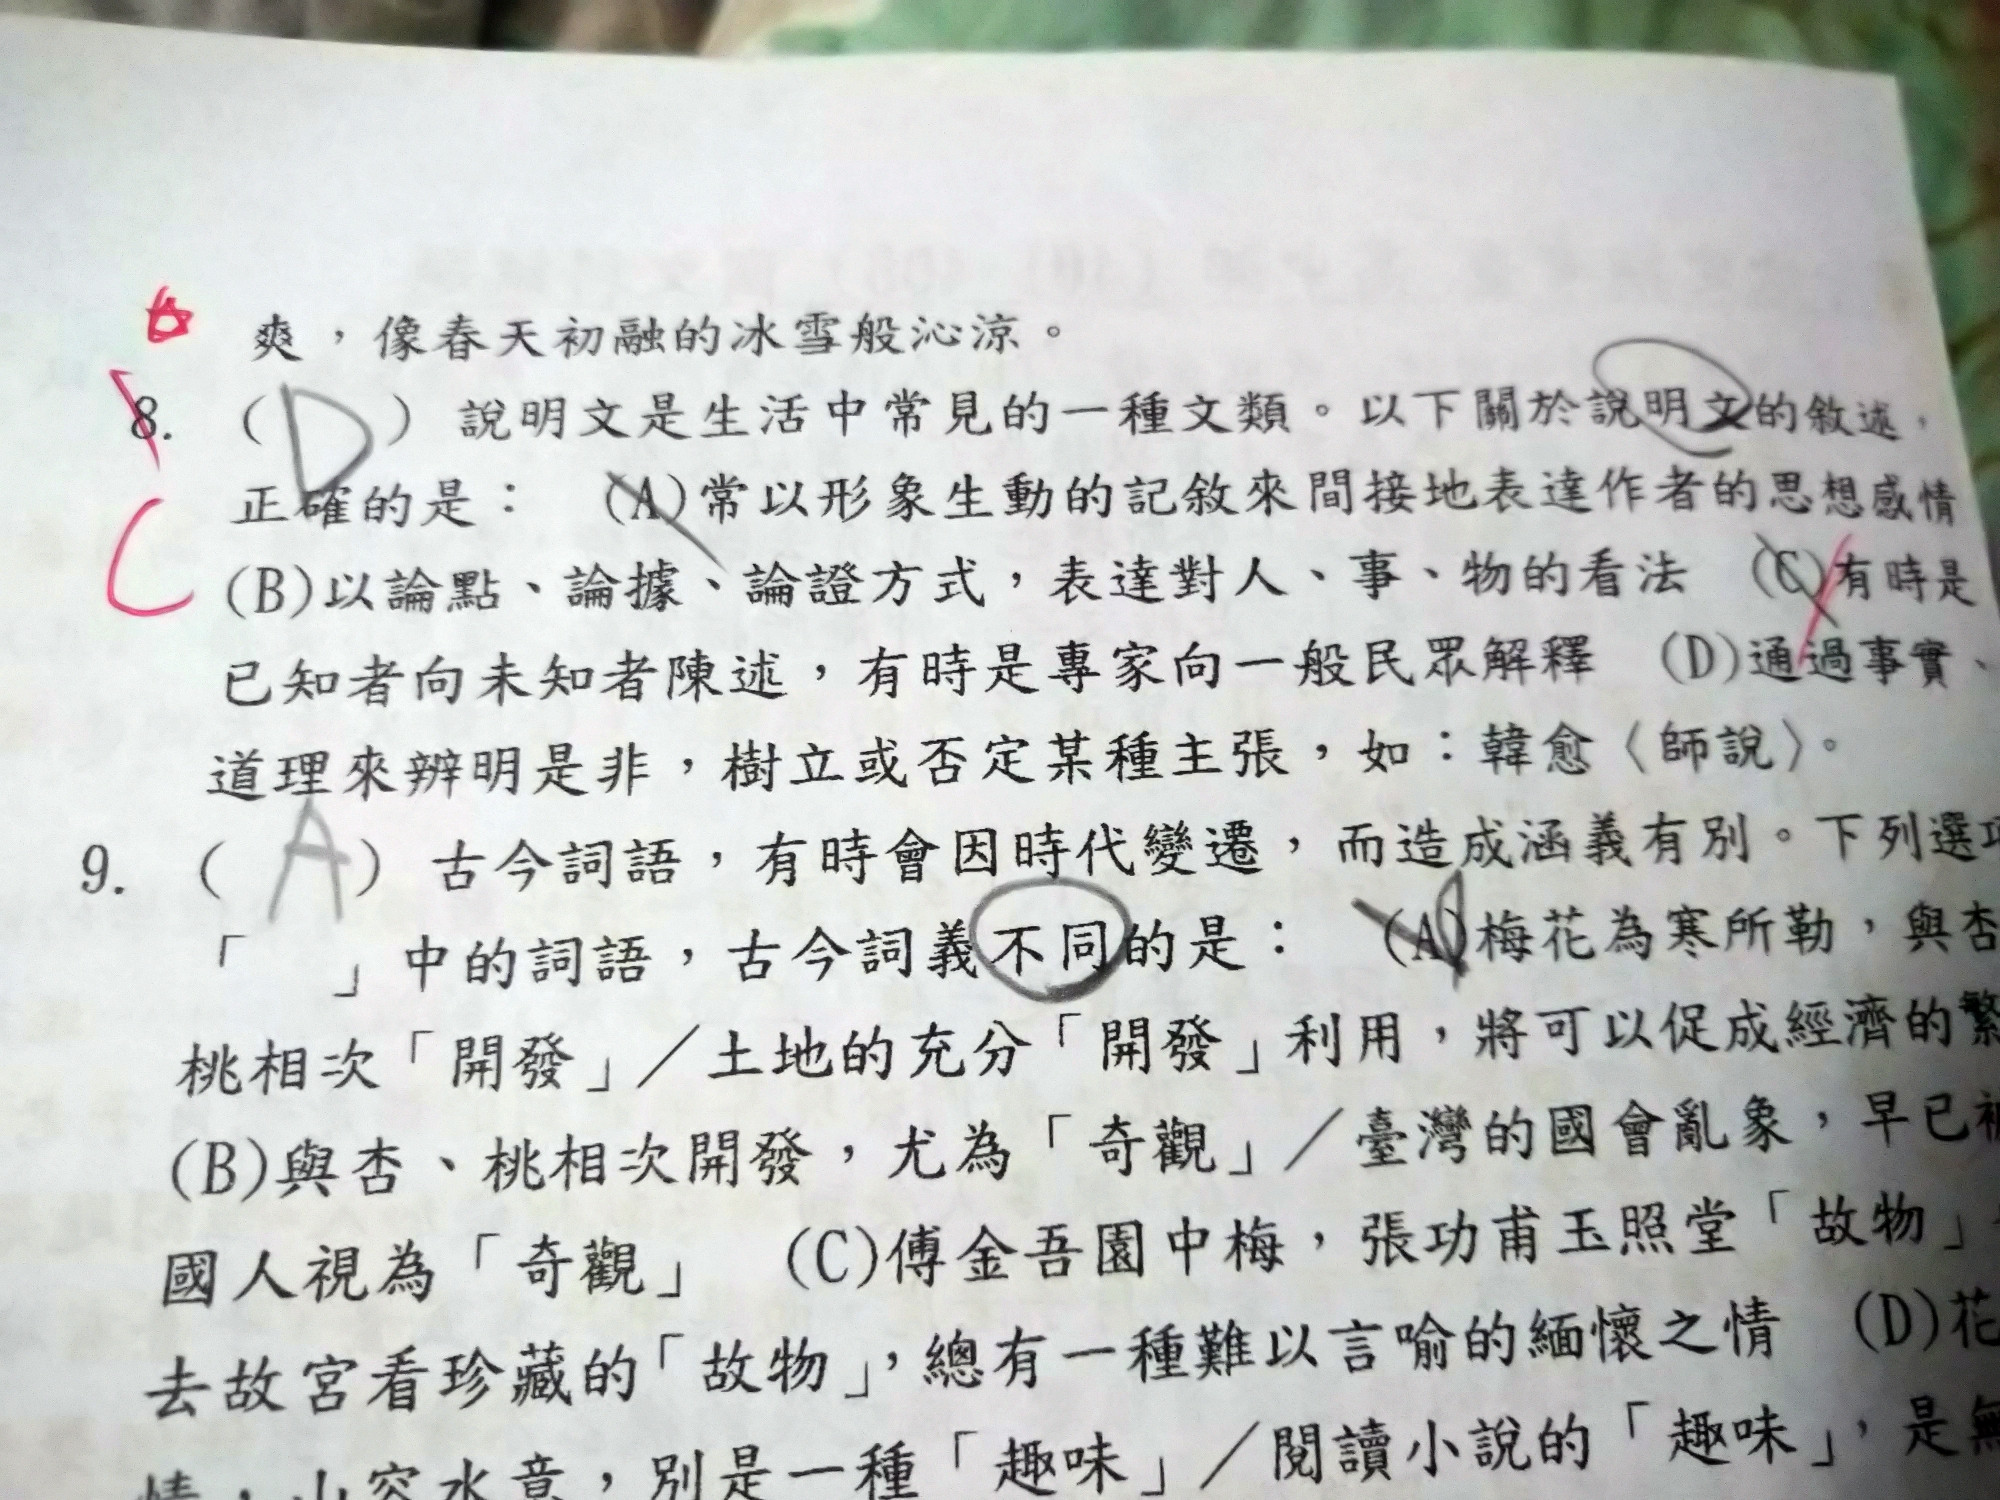 爽，像春天初融的冰雪般沁涼。
8. （D）說明文是生活中常見的一種文類。以下關於說明文的敘述，
正確的是： (A)常以形象生動的記敘來間接地表達作者的思想感情
C (B)以論點、論據、論證方式，表達對人、事、物的看法 (C)有時是
已知者向未知者陳述，有時是專家向一般民眾解釋 (D)通過事實、
道理來辨明是非，樹立或否定某種主張，如：韓愈〈師說〉。
9. （A）古今詞語，有時會因時代變遷，而造成涵義有別。下列選項
「　」中的詞語，古今詞義不同的是： (A)梅花為寒所勒，與杏
桃相次「開發」／土地的充分「開發」利用，將可以促成經濟的繁
(B)與杏、桃相次開發，尤為「奇觀」／臺灣的國會亂象，早已被
國人視為「奇觀」 (C)傅金吾園中梅，張功甫玉照堂「故物」
去故宮看珍藏的「故物」，總有一種難以言喻的緬懷之情 (D)花
情，山容水意，別是一種「趣味」／閱讀小說的「趣味」，是無